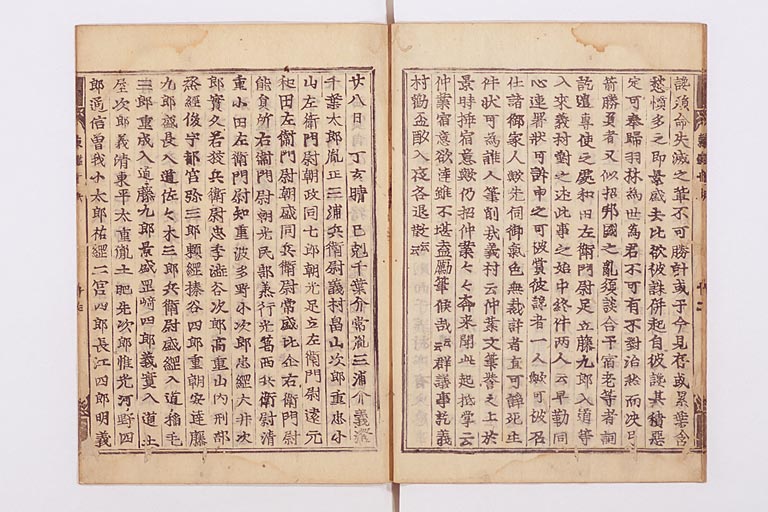 讒須命失滅之輩不可勝計或于今見存或累葉含
愁憤多之即景盛去比欲被誅併起自彼讒其積惡
定可奉歸羽林為世為君不可有不對治然而決弓
箭勝負者又似招邦國之亂須談合于宿老等者詞
訖遣專使之處和田左衛門尉足立藤九郎入道等
入來義村對之述此事之始中終件兩人云早勒同
心連署狀可訴申之可被賞彼讒者一人歟可被召
仕諸御家人歟先伺御氣色無裁許者直可諍死生
件狀可為誰人筆削哉義村云仲業文筆譽之上於
景時挿宿意歟仍招仲業々々奔來聞此趣抵掌云
仲業宿意欲達雖不堪盍勵筆作哉云々群議事訖義
村勸盃酌入夜各退散云々
廿八日丁亥晴巳剋千葉介常胤三浦介義澄
千葉太郎胤正三浦兵衛尉義村畠山次郎重忠小
山左衛門尉朝政同七郎朝光足立左衛門尉遠元
和田左衛門尉朝盛同兵衛尉常盛比企右衛門尉
能員所右衛門尉朝光民部丞行光葛西兵衛尉清
重小田左衛門尉知重波多野小次郎忠經大井次
郎實久若狹兵衛尉忠季澁谷次郎高重山内刑部
丞經俊宇都宮弥三郎頼經榛谷四郎重朝安達藤
九郎盛長入道佐々木三郎兵衛尉盛綱入道稲毛
三郎重成入道藤九郎景盛岡崎四郎義實入道土
屋次郎義清東平太重胤土肥先次郎惟光河野四
郎通信曽我小太郎祐經二宮四郎長江四郎明義